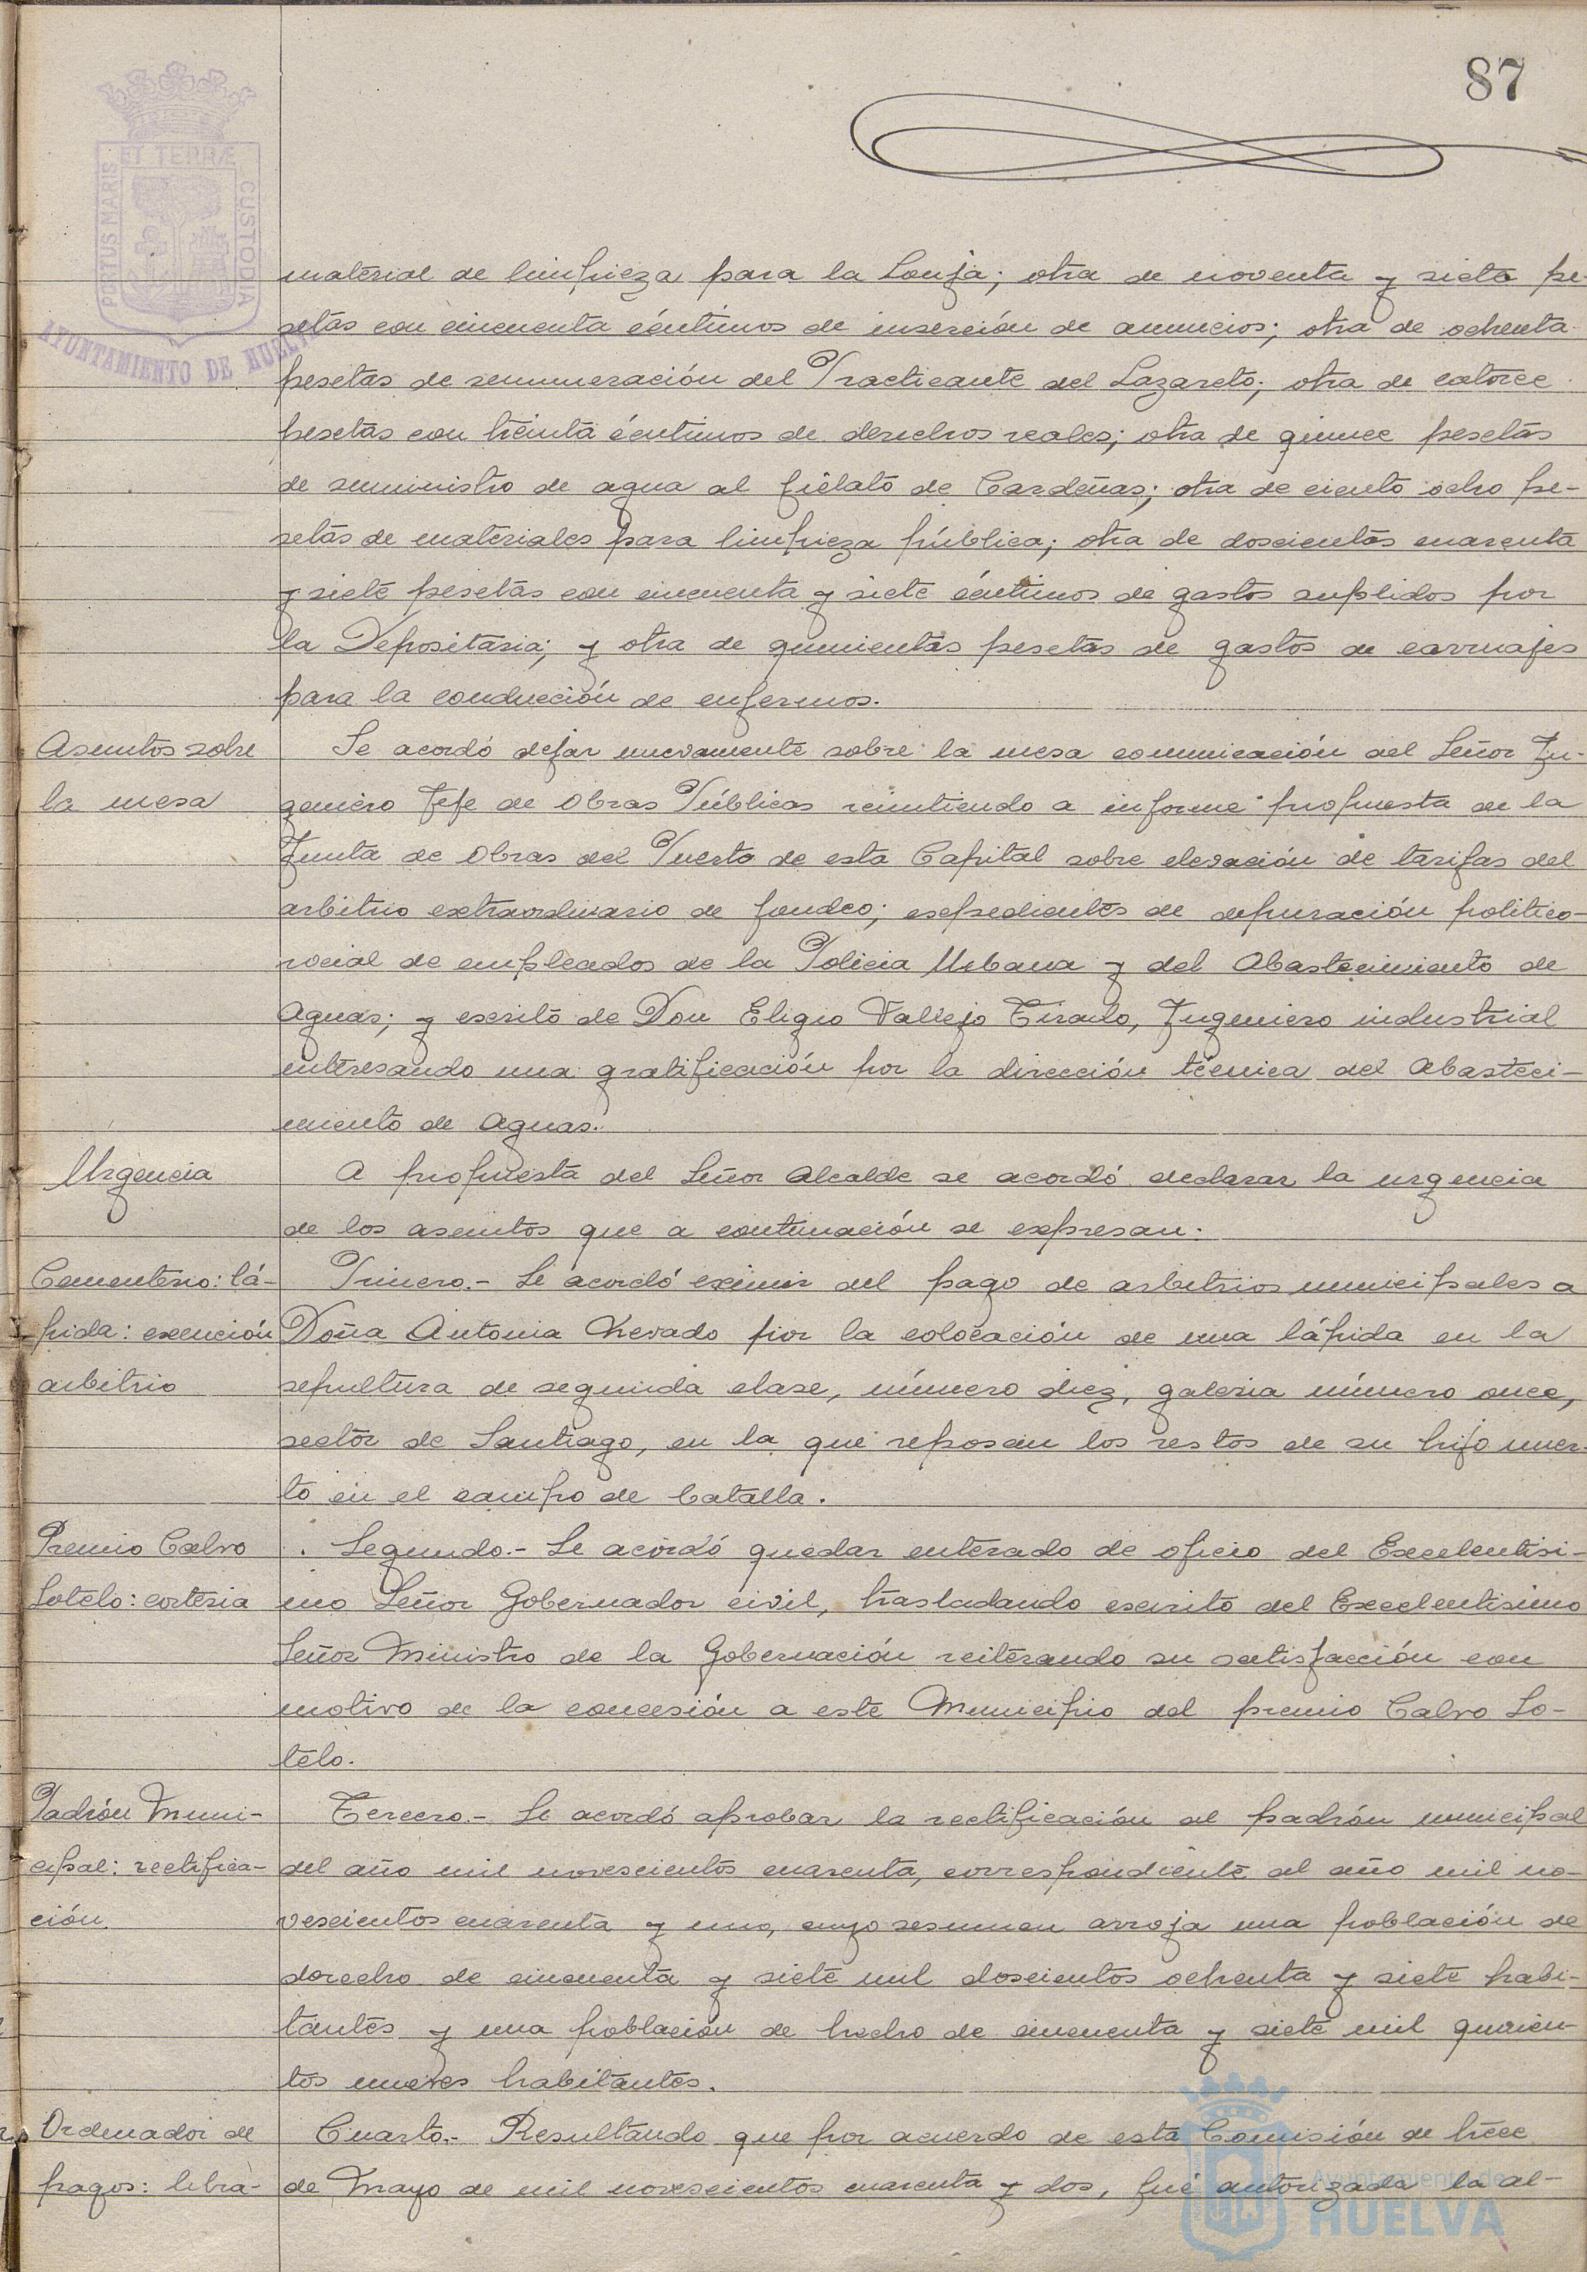 87
PORTUS MARIS ET TERRÆ CUSTODIA
AYUNTAMIENTO DE HUELVA
material de limpieza para la Lonja; otra de noventa y siete pe-
setas con cincuenta céntimos de inserción de anuncios; otra de ochenta
pesetas de remuneración del Practicante del Lazareto; otra de catorce
pesetas con treinta céntimos de derechos reales; otra de quince pesetas
de suministro de agua al fielato de Cardeñas; otra de ciento ocho pe-
setas de materiales para limpieza pública; otra de doscientas cuarenta
y siete pesetas con cincuenta y siete céntimos de gastos suplidos por
la Depositaria; y otra de quinientas pesetas de gastos de carruajes
para la conducción de enfermos.
Asuntos sobre
la mesa
Se acordó dejar nuevamente sobre la mesa comunicación del Señor In-
geniero Jefe de Obras Públicas remitiendo a informe propuesta de la
Junta de Obras del Puerto de esta Capital sobre elevación de tarifas del
arbitrio extraordinario de fondeo; expedientes de depuración politico-
social de empleados de la Policia Urbana y del Abastecimiento de
Aguas; y escrito de Don Eligio Vallejo Tirado, Ingeniero industrial
interesando una gratificación por la dirección técnica del Abasteci-
miento de Aguas.
Urgencia
A propuesta del Señor Alcalde se acordó declarar la urgencia
de los asuntos que a continuación se expresan:
Cementerio: lá-
pida: exención
arbitrio
Primero.- Se acordó eximir del pago de arbitrios municipales a
Doña Antonia Nevado por la colocación de una lápida en la
sepultura de segunda clase, número diez, galeria número once,
sector de Santiago, en la que reposan los restos de su hijo muer-
to en el campo de batalla.
Premio Calvo
Sotelo: cortesia
Segundo.- Se acordó quedar enterado de oficio del Excelentisi-
mo Señor Gobernador civil, trasladando escrito del Excelentisimo
Señor Ministro de la Gobernación reiterando su satisfacción con
motivo de la concesión a este Municipio del premio Calvo So-
telo.
Padrón Muni-
cipal: rectifica-
ción.
Tercero.- Se acordó aprobar la rectificación al padrón municipal
del año mil novescientos cuarenta, correspondiente al año mil no-
vescientos cuarenta y uno, cuyo resumen arroja una población de
derecho de cincuenta y siete mil doscientos ochenta y siete habi-
tantes y una población de hecho de cincuenta y siete mil quinien-
tos nueves habitantes.
Ordenador de
pagos: libra-
Cuarto.- Resultando que por acuerdo de esta Comisión de trece
de Mayo de mil novescientos cuarenta y dos, fué autorizada la al-
Ayuntamiento de
HUELVA